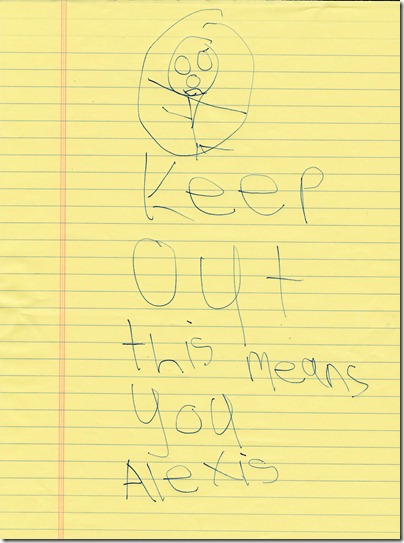 Keep
Out
this means
you
Alexis